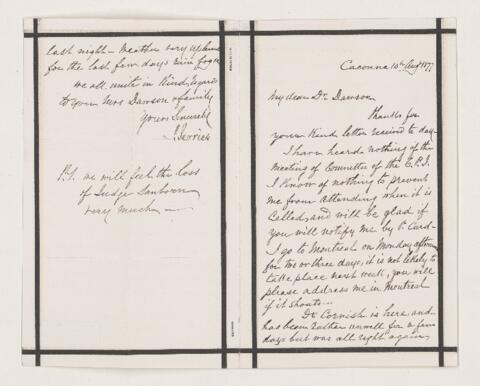 Cacouna 10th Aug 1877
My dear Dr. Dawson
Thanks for
your Kind letter received to day—
I have heard nothing of the
Meeting of Committee of the C.P.I.
I Know of nothing to prevent
me from attending when it is
Called, and will be glad if
you will notify me by P. Card—
I go to Montreal on Monday afternoon
for two or three days, it is not likely to
take place next week, you will
please address me in Montreal
if it should...
Dr Cornish is here and
has been rather unwell for a few
days but was all right again
last night— Weather very
for the last few days Rain fog &c
we all unite in Kind regards
to you Mrs Dawson & family
Yours Sincerely
J. Ferrier
P.S. we will feel the loss
of Judge Sanborn
very much —